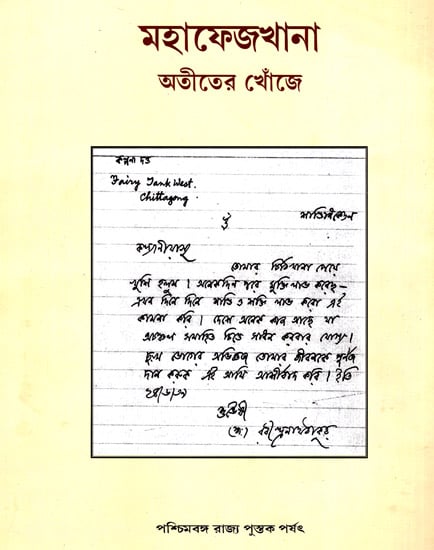 মহাফেজখানা
অতীতের খোঁজে
কল্পনা দত্ত
Fairy Tank West.
Chittagong
ওঁ
শান্তিনিকেতন
কল্যাণীয়াসু
তোমার চিঠিখানা পেয়ে
খুশি হলুম। অনেকদিন পরে মুক্তিলাভ করেছ—
এখন দিনে দিনে শান্তি ও শক্তি লাভ করো এই
কামনা করি। দেশে অনেক কাজ আছে যা
অচঞ্চল সমাহিত চিত্তে সাধন করবার যোগ্য।
দুঃখ ভোগের অভিজ্ঞতা তোমার জীবনকে পূর্ণতা
দান করুক এই আমি আশীর্বাদ করি। ইতি
শুভার্থী
রবীন্দ্রনাথ ঠাকুর
পশ্চিমবঙ্গ রাজ্য পুস্তক পর্ষৎ